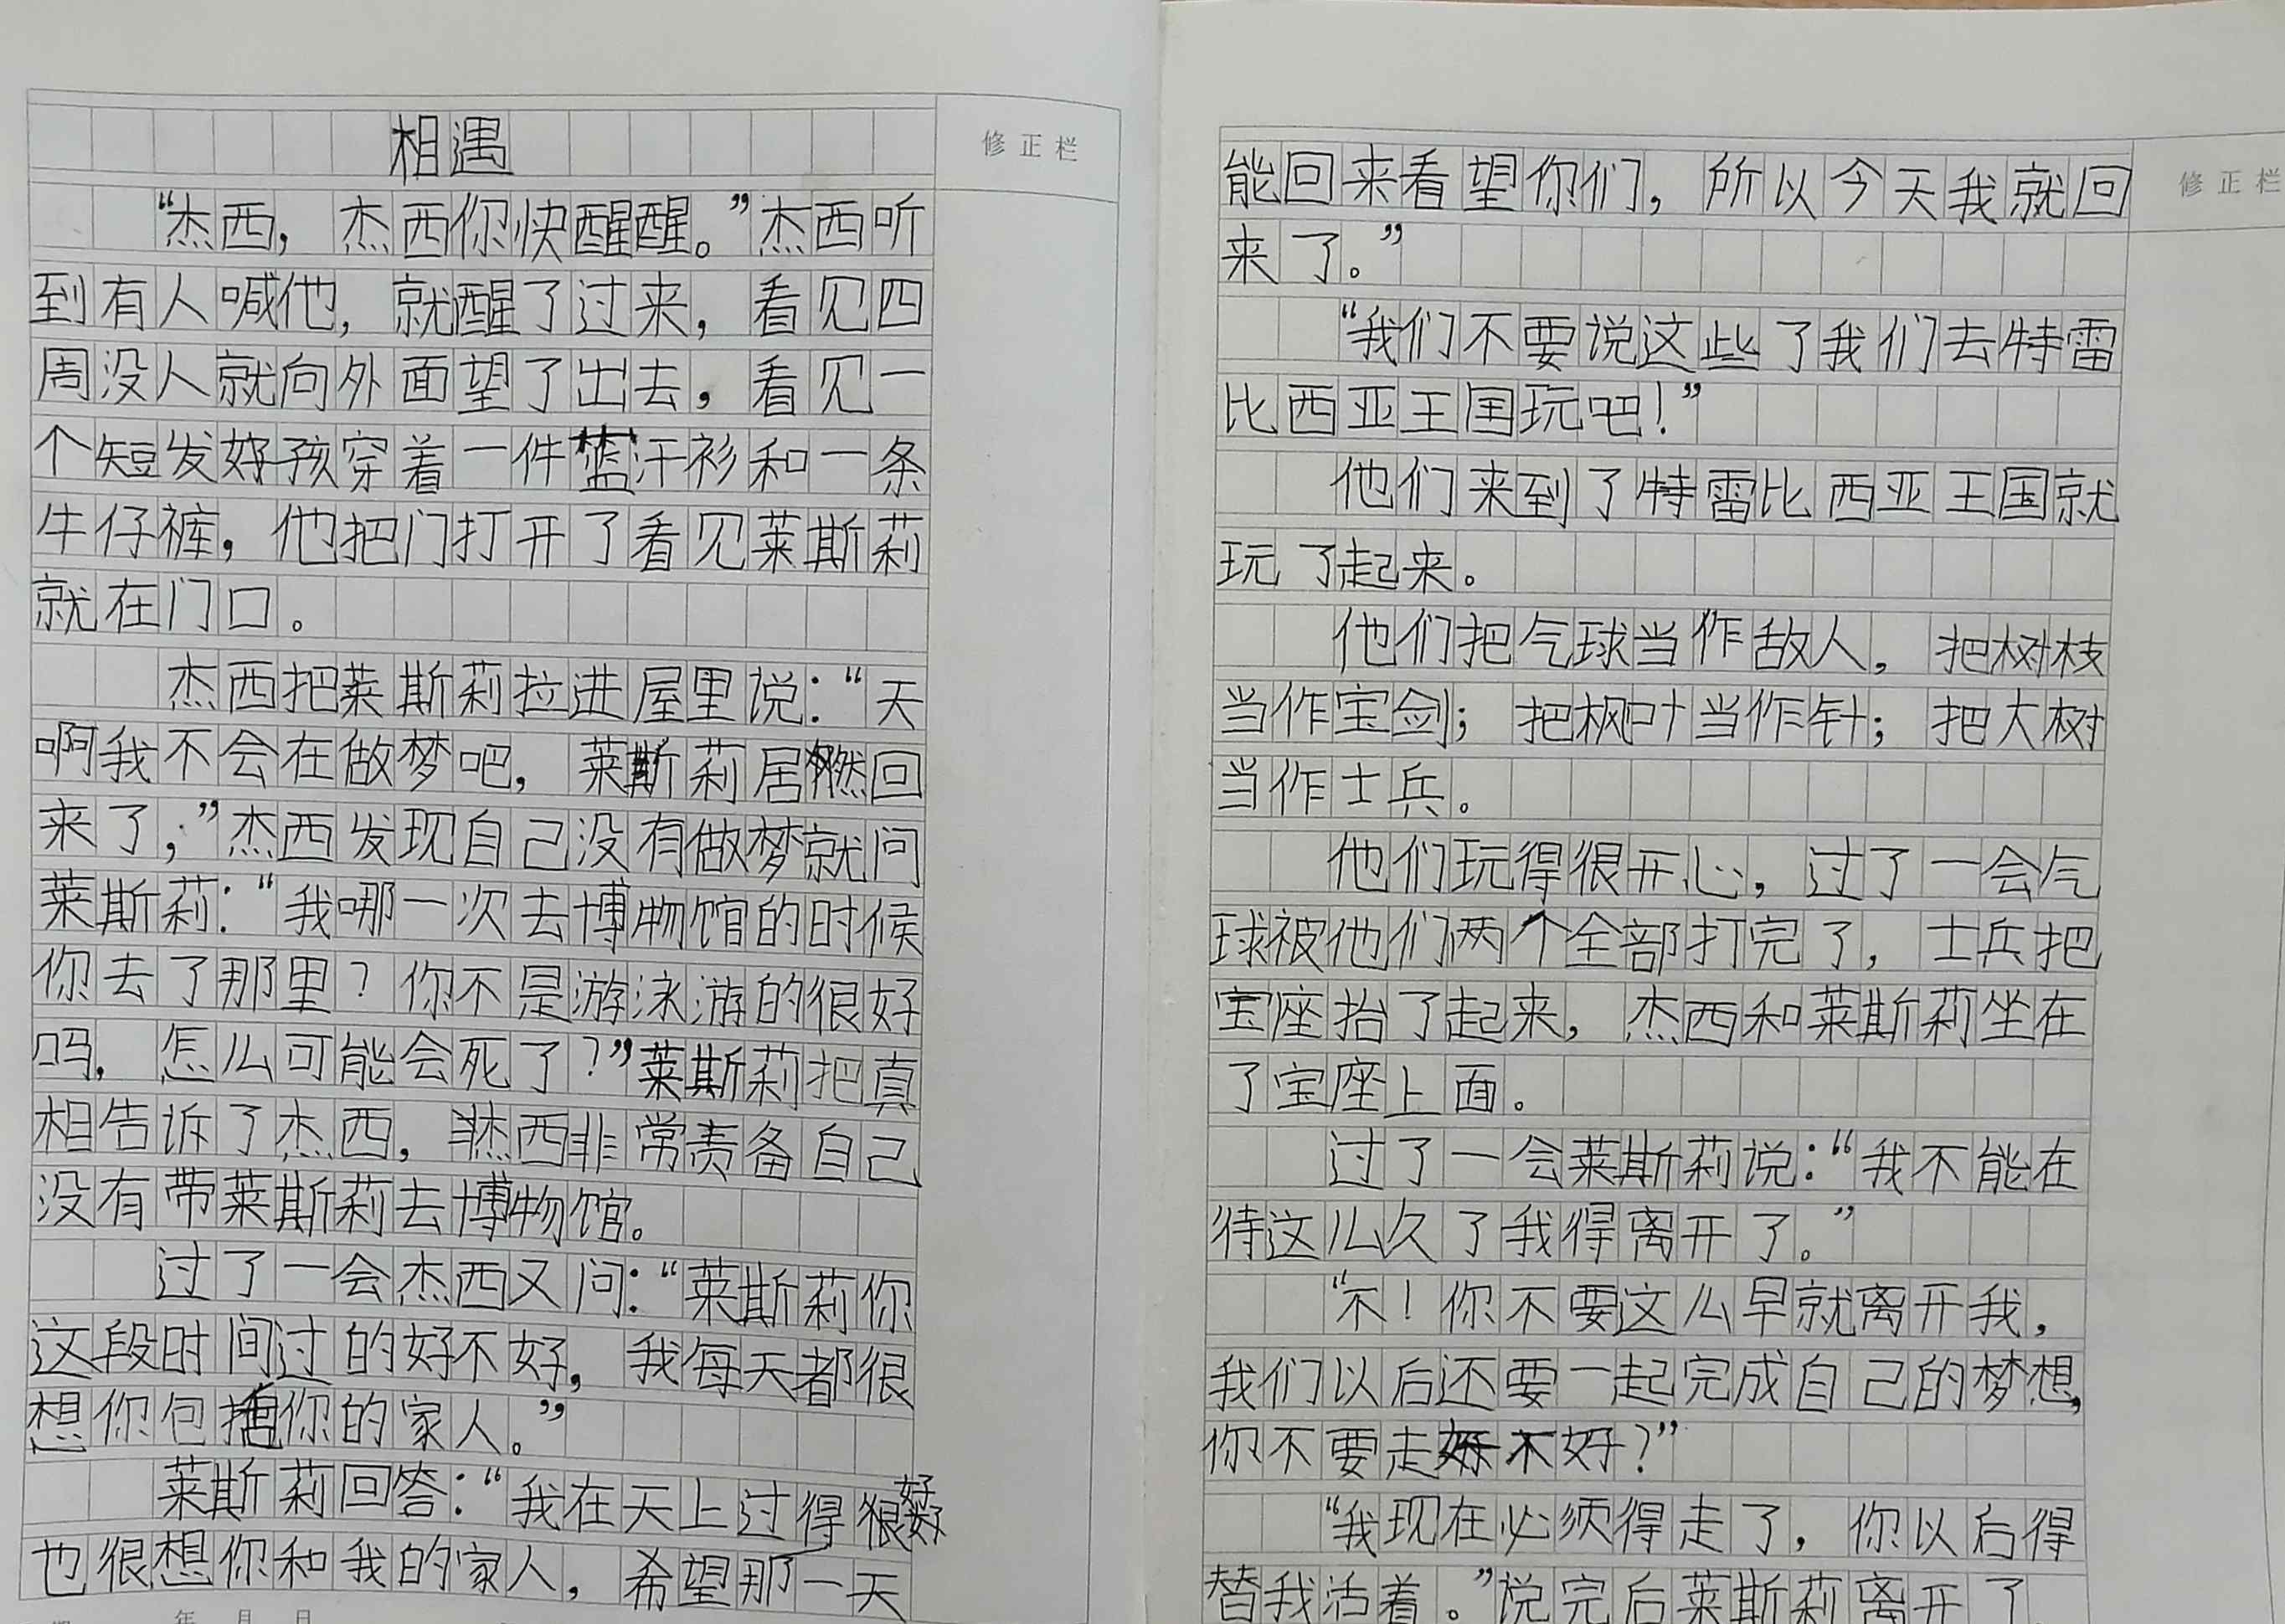 相遇
修正栏
“杰西，杰西你快醒醒。”杰西听
到有人喊他，就醒了过来，看见四
周没人就向外面望了出去，看见一
个短发好孩穿着一件蓝汗衫和一条
牛仔裤，他把门打开了看见莱斯莉
就在门口。
杰西把莱斯莉拉进屋里说：“天
啊我不会在做梦吧，莱斯莉居然回
来了，”杰西发现自己没有做梦就问
莱斯莉：“我哪一次去博物馆的时候
你去了那里？你不是游泳游的很好
吗，怎么可能会死了？”莱斯莉把真
相告诉了杰西，杰西非常责备自己
没有带莱斯莉去博物馆。
过了一会杰西又问：“莱斯莉你
这段时间过的好不好，我每天都很
想你包括你的家人。”
莱斯莉回答：“我在天上过得很好
也很想你和我的家人，希望那一天
年 月 日
修正栏
能回来看望你们，所以今天我就回
来了。”
“我们不要说这些了我们去特雷
比西亚王国玩吧！”
他们来到了特雷比西亚王国就
玩了起来。
他们把气球当作敌人，把树枝
当作宝剑；把枫叶当作针；把大树
当作士兵。
他们玩得很开心，过了一会气
球被他们两个全部打完了，士兵把
宝座抬了起来，杰西和莱斯莉坐在
了宝座上面。
过了一会莱斯莉说：“我不能在
待这么久了我得离开了。”
“不！你不要这么早就离开我，
我们以后还要一起完成自己的梦想，
你不要走好不好？”
“我现在必须得走了，你以后得
替我活着。”说完后莱斯莉离开了